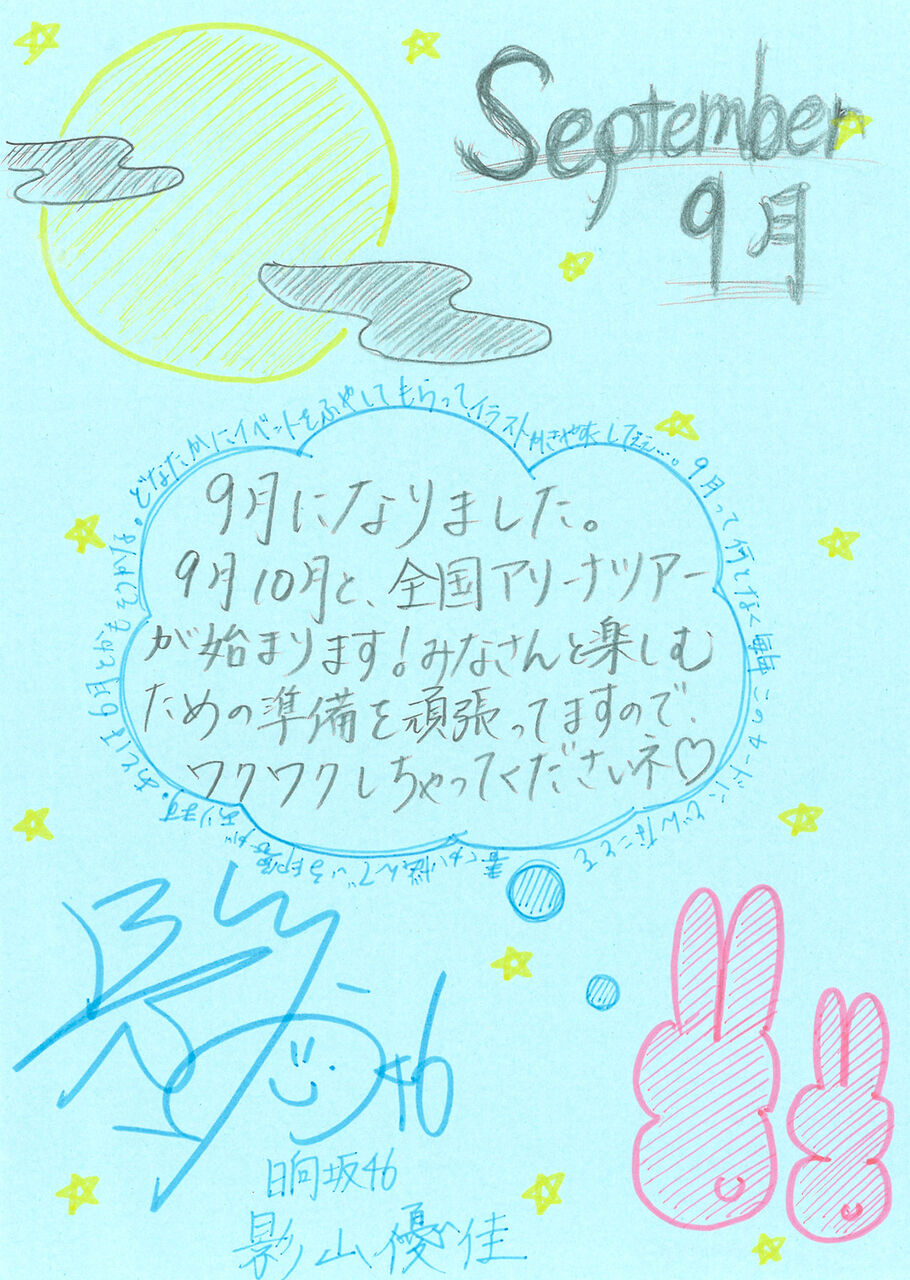 September
9月
9月になりました。
9月10月と、全国アリーナツアー
が始まります!みなさんと楽しむ
ための準備を頑張ってますので、
ワクワクしちゃってくださいネ♡
どなたかにイベントをふやしてもらってイラストかきやすくしてぇ…。9月って何となく毎年このカードにどんなことを書くか悩んでいる印象があります。あとは6月とかもそうかな。
46
日向坂46
影山優佳